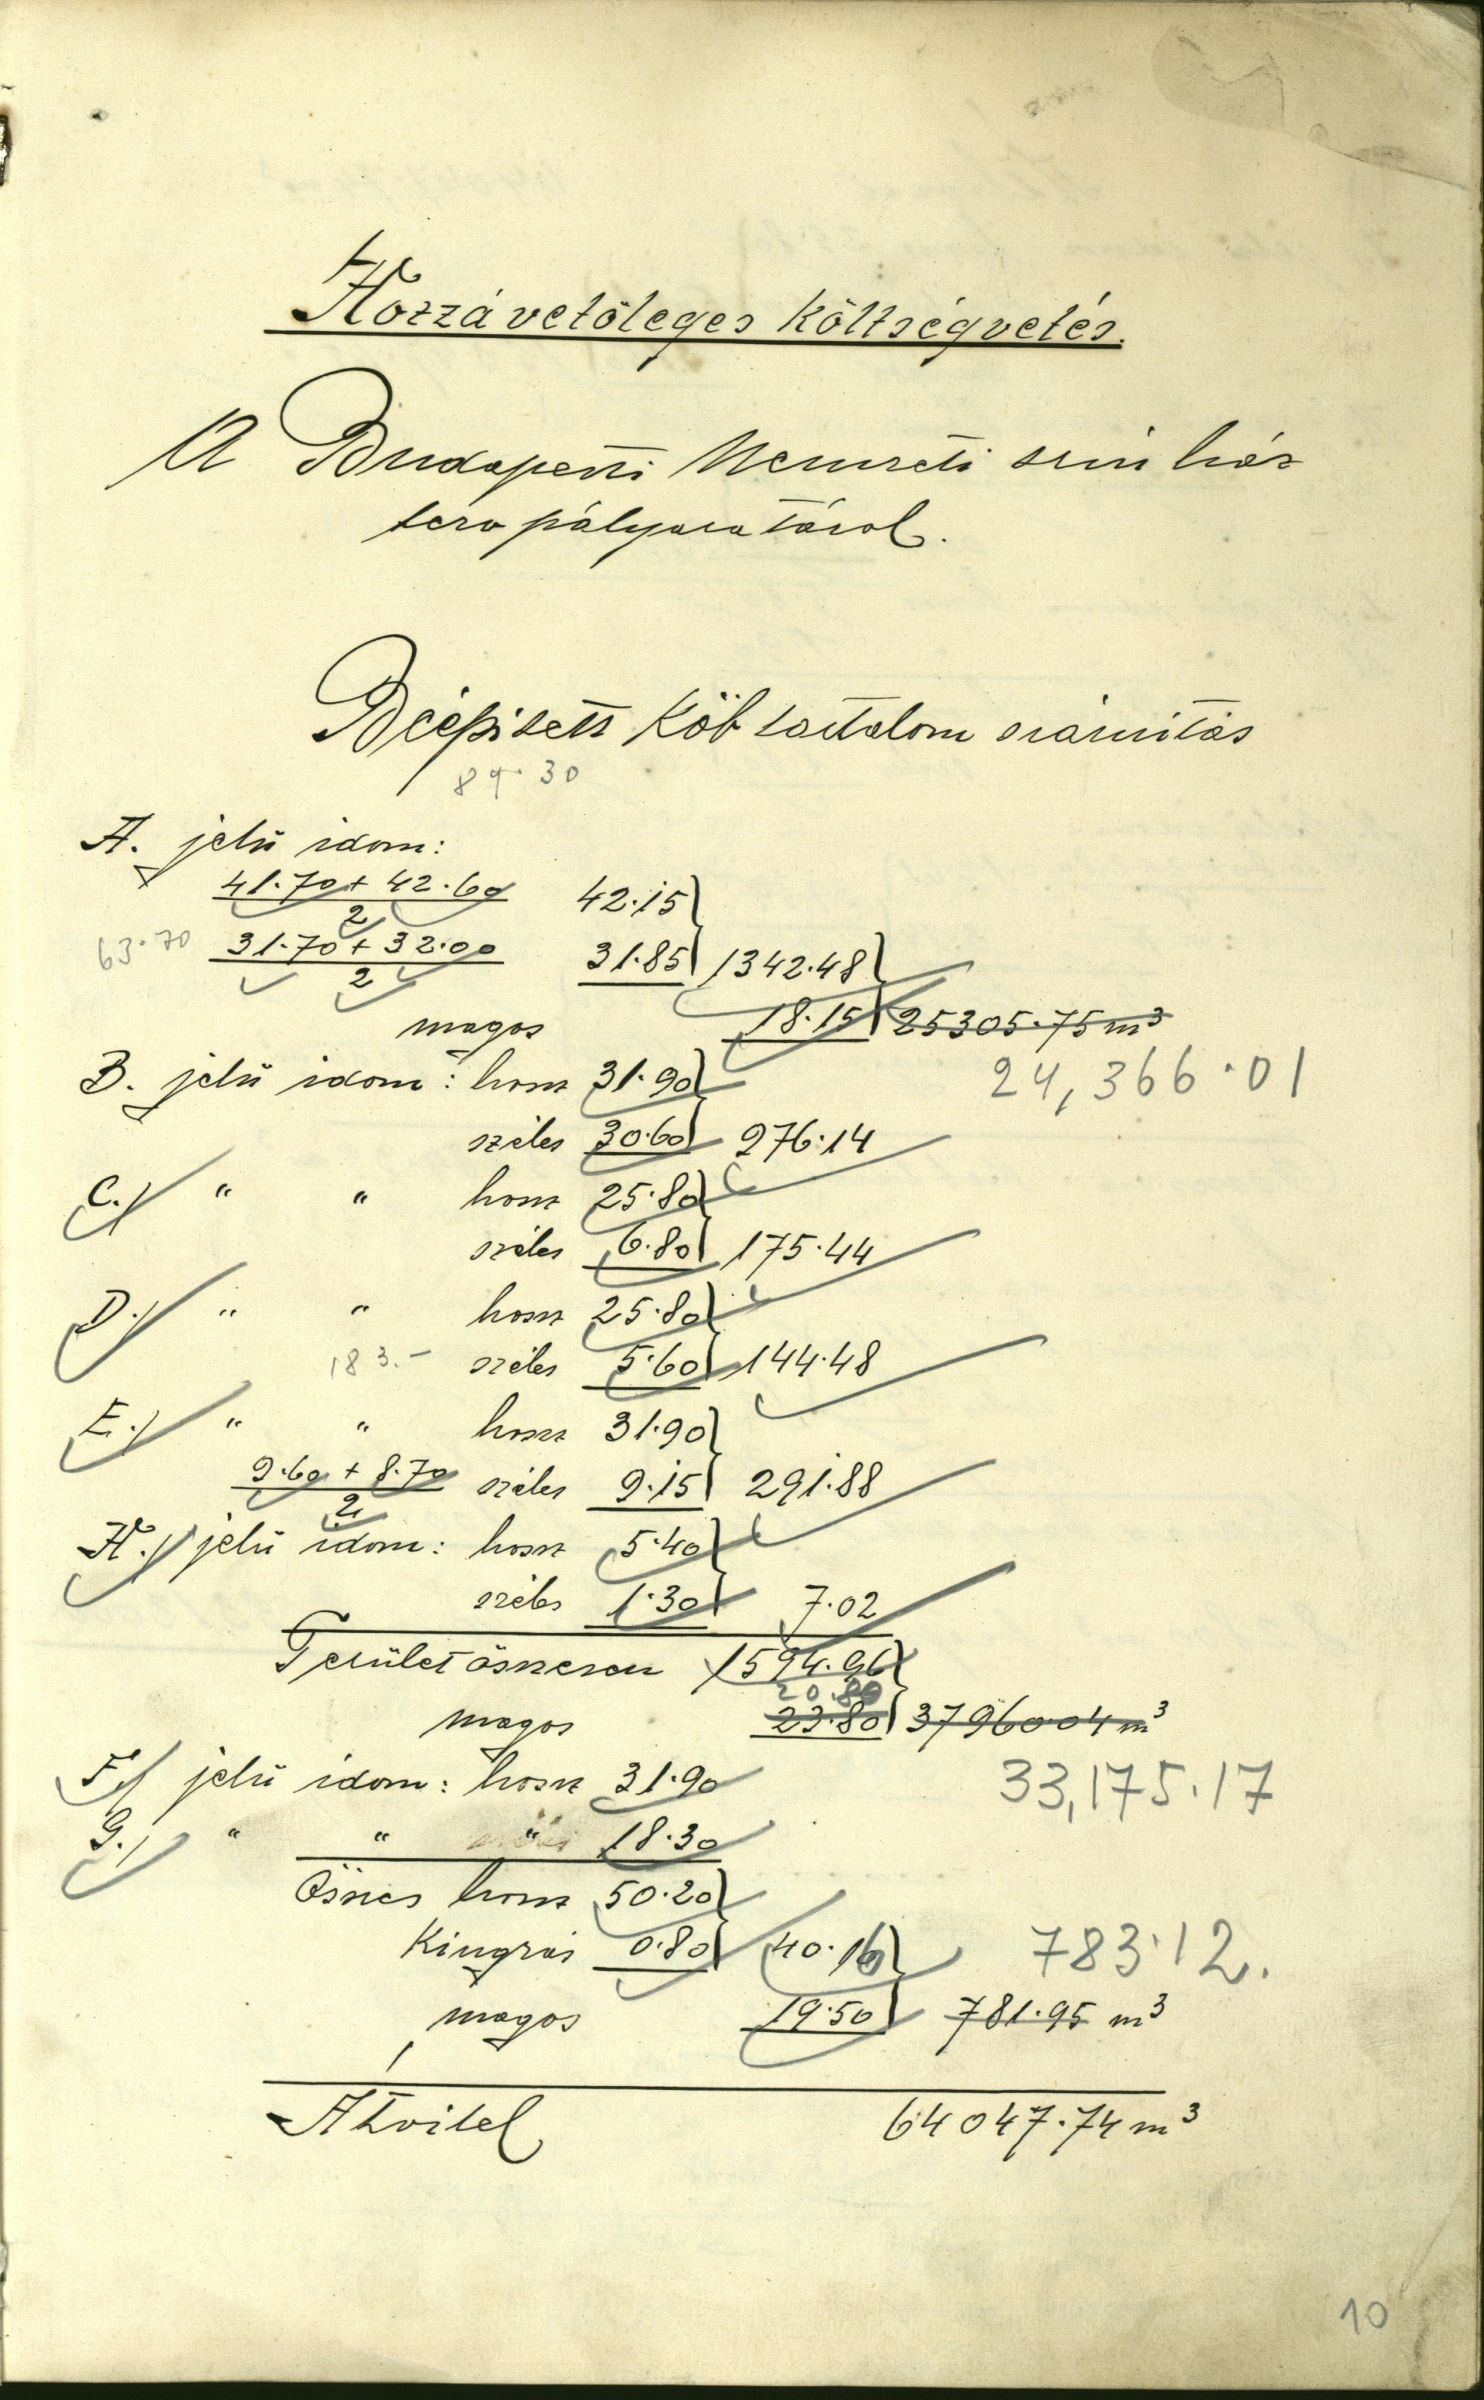 Hozzávetőleges költségvetés.
A Budapesti Nemzeti szinház
terv pályázatáról.
Béépitett Köb tartalom számitás
84.30
A. jelü idom:
41.70 + 42.60 / 2 42.15
63.70 31.70 + 32.00 / 2 31.85 1342.48
magos 18.15 25305.75 m³
24,366.01
B. jelü idom: hossz 31.90
széles 30.60 976.14
C./ " " hossz 25.80
széles 6.80 175.44
D./ " " hossz 25.80
183.- széles 5.60 144.48
E./ " " hossz 31.90
9.60 + 8.70 / 2 széles 9.15 291.88
H./ jelü idom: hossz 5.40
széles 1.30 7.02
Területösszesen 1594.96
20.80
magos 23.80 37960.04 m³
F./ jelü idom: hossz 31.90
33,175.17
G./ " " " 18.30
Összes hossz 50.20
Kiugrás 0.80 40.16
783.12.
magos 19.50 781.95 m³
Átvitel 64047.74 m³
10